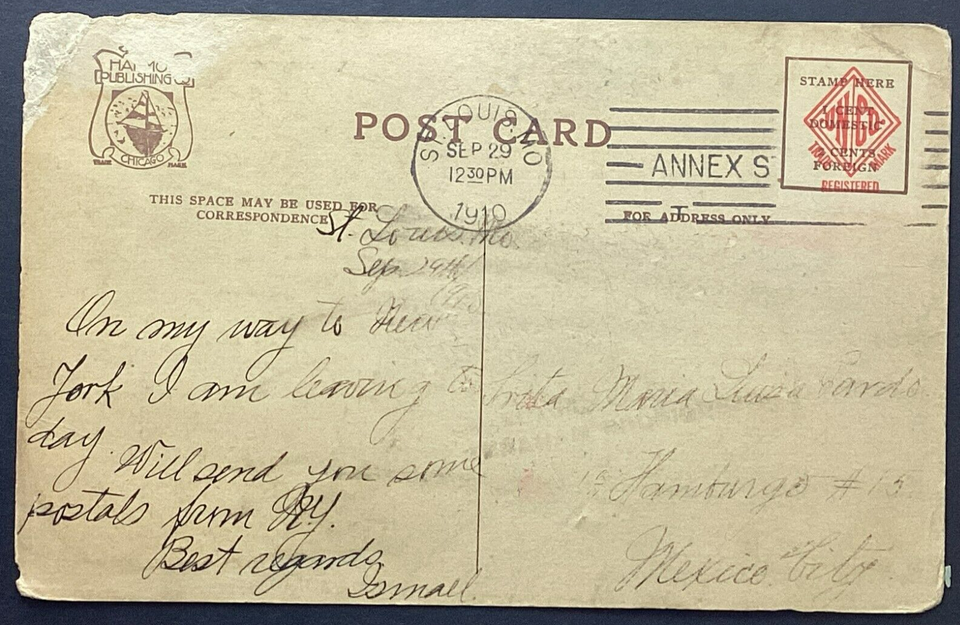 PUBLISHING
CHICAGO
TRADE MARK
POST CARD
ST. LOUIS, MO
SEP 29
12 30 PM
1910
ANNEX S
STAMP HERE
1 CENT
DOMESTIC
CENTS
FOREIGN
REGISTERED
THIS SPACE MAY BE USED FOR
CORRESPONDENCE
FOR ADDRESS ONLY
St. Louis, Mo.
Sep. 29th/
On my way to New
York I am leaving to
day. Will send you some
postals from NY.
Best regards
Ismael.
Maria Luisa Pardo
Hamburgo #13
Mexico City